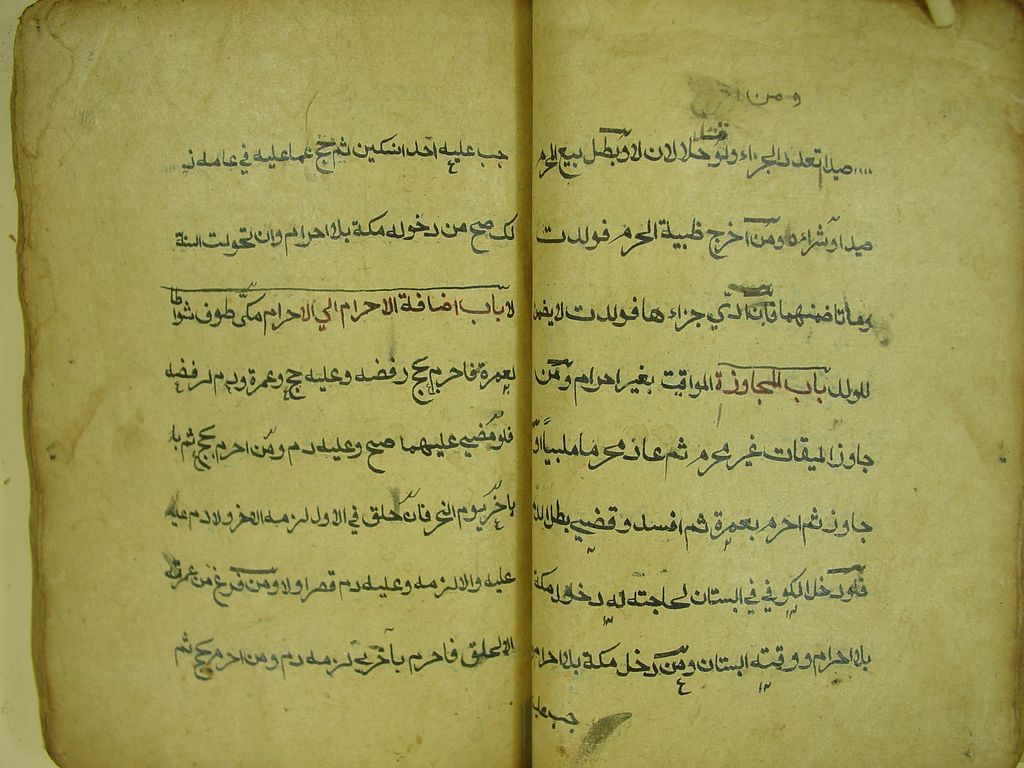 ومن
صيدا تعدد الجزاء ولو قتل حلالان لا وبطل بيع المحرم
صيدا وشراءه ومن اخرج ظبية الحرم فولدت
وماتا ضمنهما فان ادي جزاءها فولدت لا يضمن
الولد باب المجاوزة المواقيت بغير احرام ومن
جاوز الميقات غير محرم ثم عاد محرما ملبيا او
جاوز ثم احرم بعمرة ثم افسد وقضي بطل الدم
فلو دخل الكوفي في البستان لحاجته له دخول مكة
بلا احرام ووقيته البستان ومن دخل مكة بلا احرام
جب عليه
جب عليه احد النسكين ثم حج عما عليه في عامه ذ
لك صح من دخوله مكة بلا احرام وان تحولت السنة
لا باب اضافة الاحرام الي الاحرام مكي طوف شوطا
لعمرة فاحرم بحج رفضه وعليه حج وعمرة ودم لرفضه
فلو مضي عليهما صح وعليه دم ومن احرم بحج ثم با
باخر يوم النحر فان حلق في الاول لزمه الاخر ولا دم عليه
عليه والا لزمه وعليه دم قصر اولا ومن فرغ من عمرته
الا لحلق فاحرم باخري لزمه دم ومن احرم بحج ثم